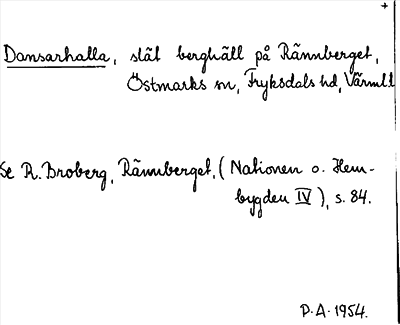 +
Dansarhalla, slät berghäll på Rännberget,
Östmarks sn, Fryksdals hd, Värml
Se R. Broberg, Rännberget, (Nationen o. Hem-
bygden IV), s. 84.
P.A. 1954.